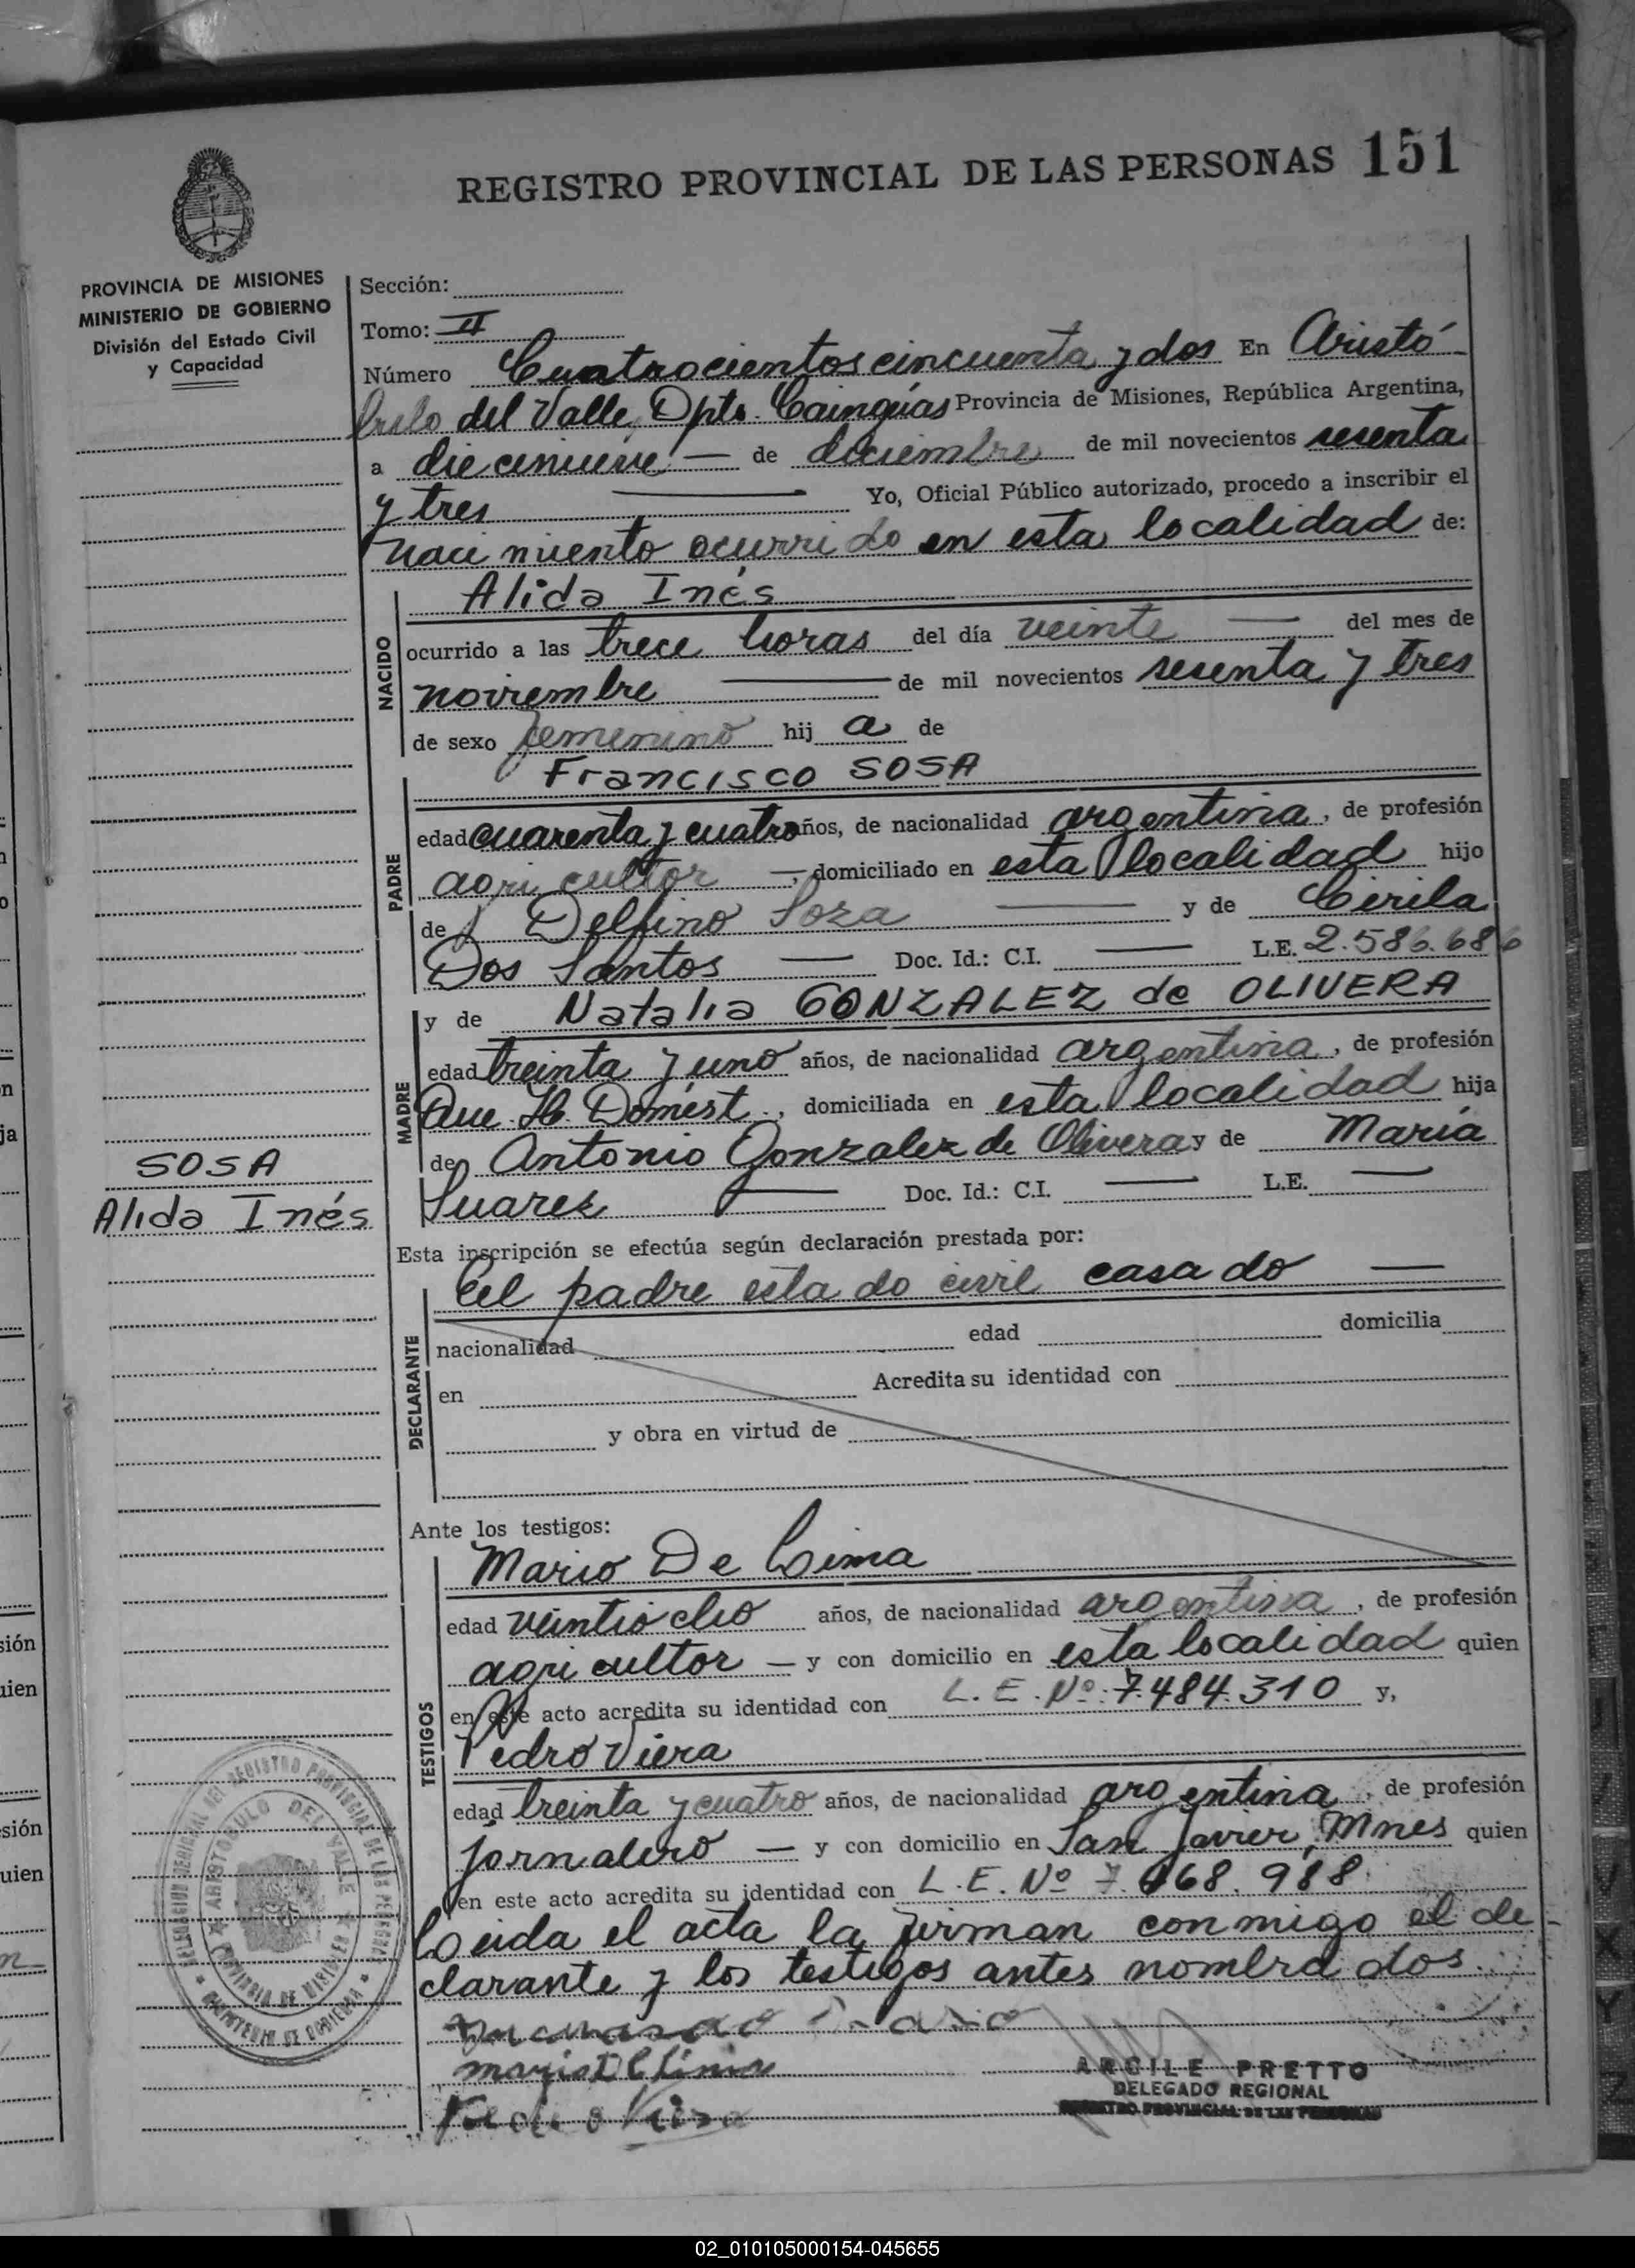 REGISTRO PROVINCIAL DE LAS PERSONAS 151
PROVINCIA DE MISIONES
MINISTERIO DE GOBIERNO
División del Estado Civil
y Capacidad
Sección:
Tomo: II
Número Cuatrocientos cincuenta y dos En Aristó-
bulo del Valle, Dpto. Cainguas Provincia de Misiones, República Argentina,
a diecinueve — de diciembre de mil novecientos sesenta
y tres — Yo, Oficial Público autorizado, procedo a inscribir el
nacimiento ocurrido en esta localidad de:
NACIDO
Alida Inés
ocurrido a las trece horas del día veinte — del mes de
noviembre — de mil novecientos sesenta y tres
de sexo femenino hij a de
PADRE
Francisco SOSA
edad cuarenta y cuatro años, de nacionalidad argentina, de profesión
agricultor —, domiciliado en esta localidad hijo
de Delfino Soza — y de Cirila
Dos Santos — Doc. Id.: C.I. — L.E. 2.586.686
MADRE
y de Natalia GONZALEZ de OLIVERA
edad treinta y uno años, de nacionalidad argentina, de profesión
Que. H. Domést., domiciliada en esta localidad hija
de Antonio Gonzalez de Olivera y de María
Suarez — Doc. Id.: C.I. — L.E. —
SOSA
Alida Inés
Esta inscripción se efectúa según declaración prestada por:
DECLARANTE
El padre estado civil casado —
nacionalidad edad domicilia
en Acredita su identidad con
y obra en virtud de
Ante los testigos:
TESTIGOS
Mario De Lima
edad veintiocho años, de nacionalidad argentina, de profesión
agricultor — y con domicilio en esta localidad quien
en este acto acredita su identidad con L.E. Nº: 7.484.310 y,
Pedro Viera
edad treinta y cuatro años, de nacionalidad argentina, de profesión
jornalero — y con domicilio en San Javier, Mnes quien
en este acto acredita su identidad con L.E. Nº 7.468.988.
Leida el acta la firman conmigo el de-
clarante y los testigos antes nombrados.
mario De Lima
Pedro Viera
ARGILE PRETTO
DELEGADO REGIONAL
REGISTRO PROVINCIAL DE LAS PERSONAS
DELEGACION REGIONAL DEL REGISTRO PROVINCIAL DE LAS PERSONAS
ARISTOBULO DEL VALLE
PROVINCIA DE MISIONES
MINISTERIO DE GOBIERNO
02_010105000154-045655